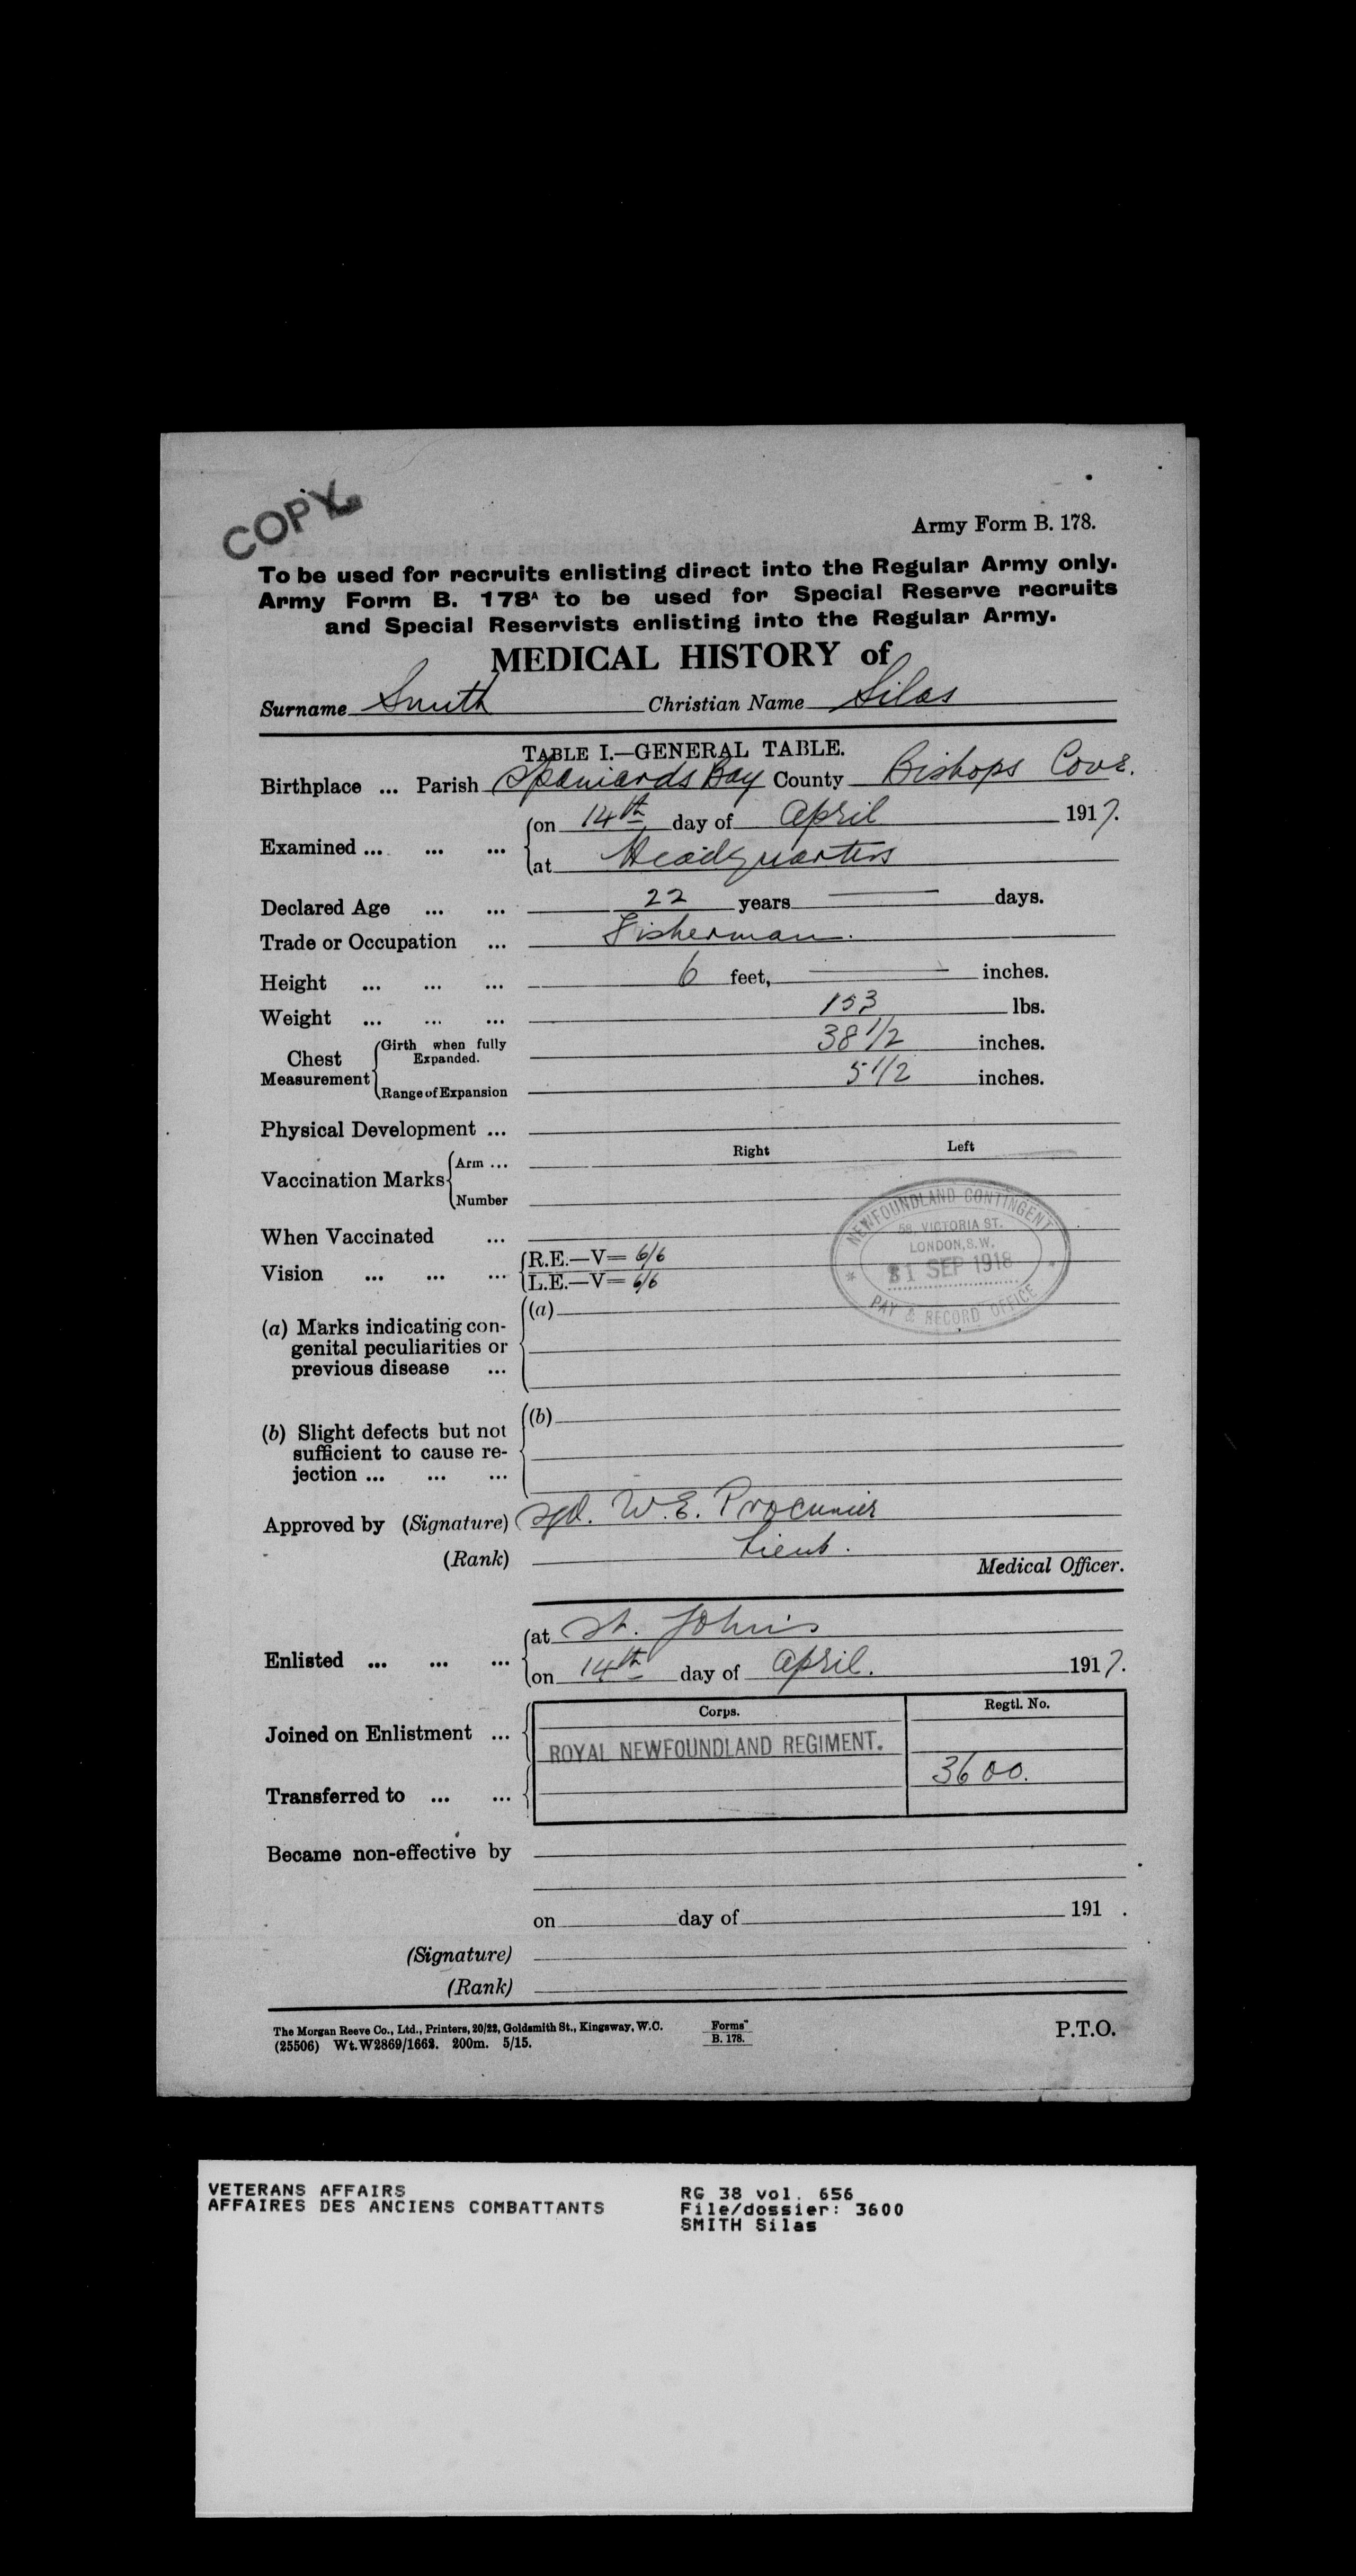 COPY.
Army Form B. 178.
To be used for recruits enlisting direct into the Regular Army only.
Army Form B. 178A to be used for Special Reserve recruits
and Special Reservists enlisting into the Regular Army.
MEDICAL HISTORY of
Surname Smith Christian Name Silas
TABLE I.—GENERAL TABLE.
Birthplace ... Parish Spaniards Bay County Bishops Cove.
Examined ... ... ... on 14th day of April 1917.
at Headquarters
Declared Age ... ... 22 years — days.
Trade or Occupation ... Fisherman.
Height ... ... ... 6 feet, — inches.
Weight ... ... ... 153 lbs.
Chest Measurement Girth when fully Expanded. 38 1/2 inches.
Range of Expansion 5 1/2 inches.
Physical Development ...
Right Left
Vaccination Marks Arm ...
Number
When Vaccinated ...
Vision ... ... ... R.E.—V= 6/6
L.E.—V= 6/6
NEWFOUNDLAND CONTINGENT
58, VICTORIA ST.
LONDON, S.W.
SEP 1918
PAY & RECORD OFFICE
(a) Marks indicating con- (a)
genital peculiarities or
previous disease ...
(b) Slight defects but not (b)
sufficient to cause re-
jection ... ... ...
Approved by (Signature) sgd. W.E. Procunier
(Rank) Lieut.
Medical Officer.
Enlisted ... ... ... at St. John's
on 14th day of April. 1917.
Corps. Regtl. No.
Joined on Enlistment ... ROYAL NEWFOUNDLAND REGIMENT.
3600.
Transferred to ... ...
Became non-effective by
on day of 191 .
(Signature)
(Rank)
The Morgan Reeve Co., Ltd., Printers, 20/22, Goldsmith St., Kingsway, W.C. Forms
(25506) Wt.W2869/1662. 200m. 5/15. B. 178.
P.T.O.
VETERANS AFFAIRS RG 38 vol. 656
AFFAIRES DES ANCIENS COMBATTANTS File/dossier: 3600
SMITH Silas